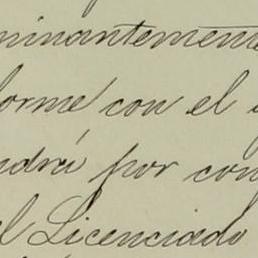 minantemente
forme con el
ndrá por con
el Licenciado